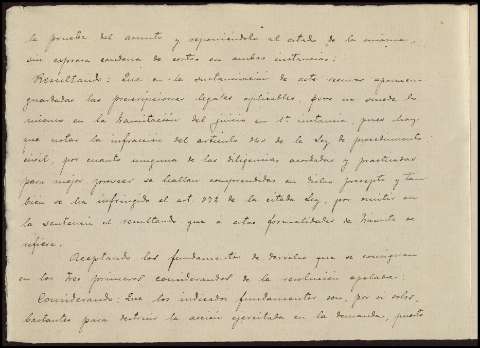 la prueba del asunto y reponiéndolo al estado de la misma,
sin expresa condena de costas en ambas instancias:
Resultando: Que en la sustanciación de este recurso aparecen
guardadas las prescripciones legales aplicables, pero no sucede lo
mismo en la tramitación del juicio en 1ª instancia, pues hay
que notar la infracción del artículo 340 de la Ley de procedimiento
civil, por cuanto ninguna de las diligencias acordadas y practicadas
para mejor proveer se hallan comprendidas en dicho precepto y tam
bien se ha infringido el art 372 de la citada Ley, por omitir en
la sentencia el resultando que á estas formalidades de trámite se
refiere.
Aceptando los fundamentos de derecho que se consignan
en los tres primeros considerandos de la resolución apelada:
Considerando: Que los indicados fundamentos son, por si solos,
bastantes para destruir la acción ejercitada en la demanda, puesto